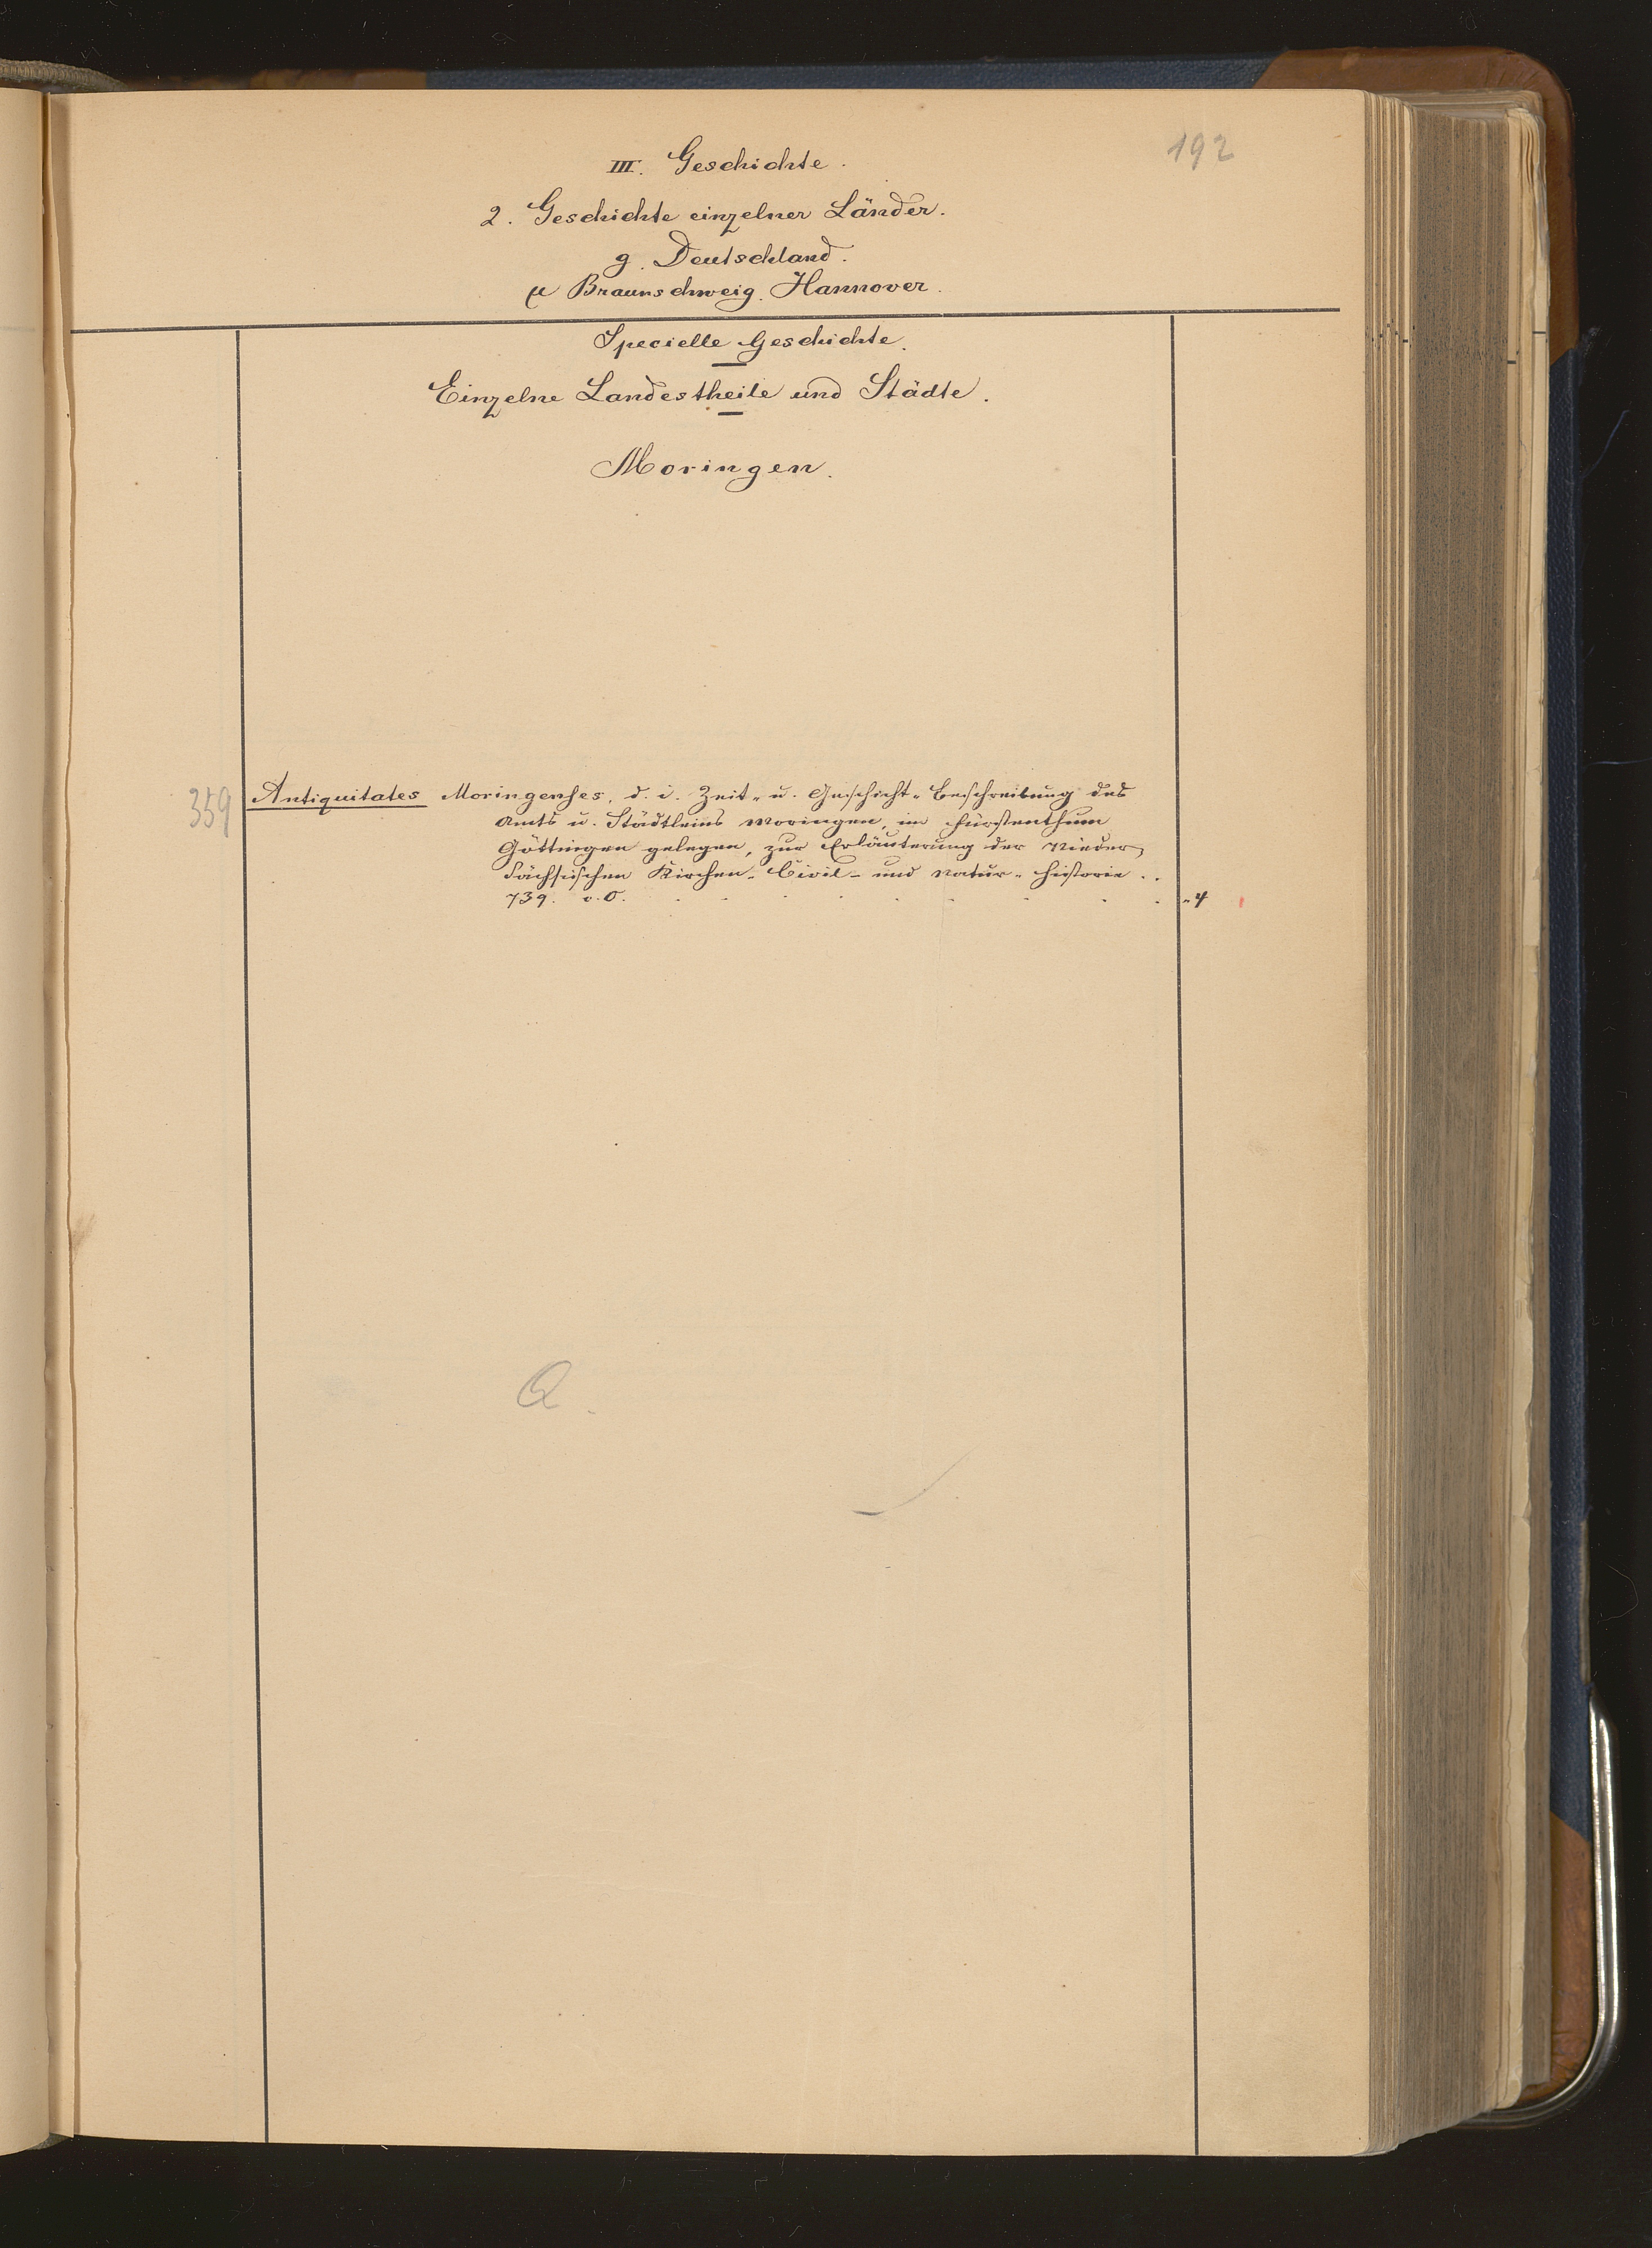 192
III. Geschichte.
2. Geschichte einzelner Länder.
g. Deutschland.
μ Braunschweig. Hannover.
Specielle Geschichte.
Einzelne Landestheile und Städte.
Moringen.
359 Antiquitates Moringenses, d. i. Zeit- u. Geschicht-Beschreibung des
Amts u. Städtleins Moringen, im Fürstenthum
Göttingen gelegen, zur Erläuterung der Nieder
Sächsischen Kirchen- Civil- und Natur-Historie . .
739. o. O. . . . . . . . . . "4
Q.